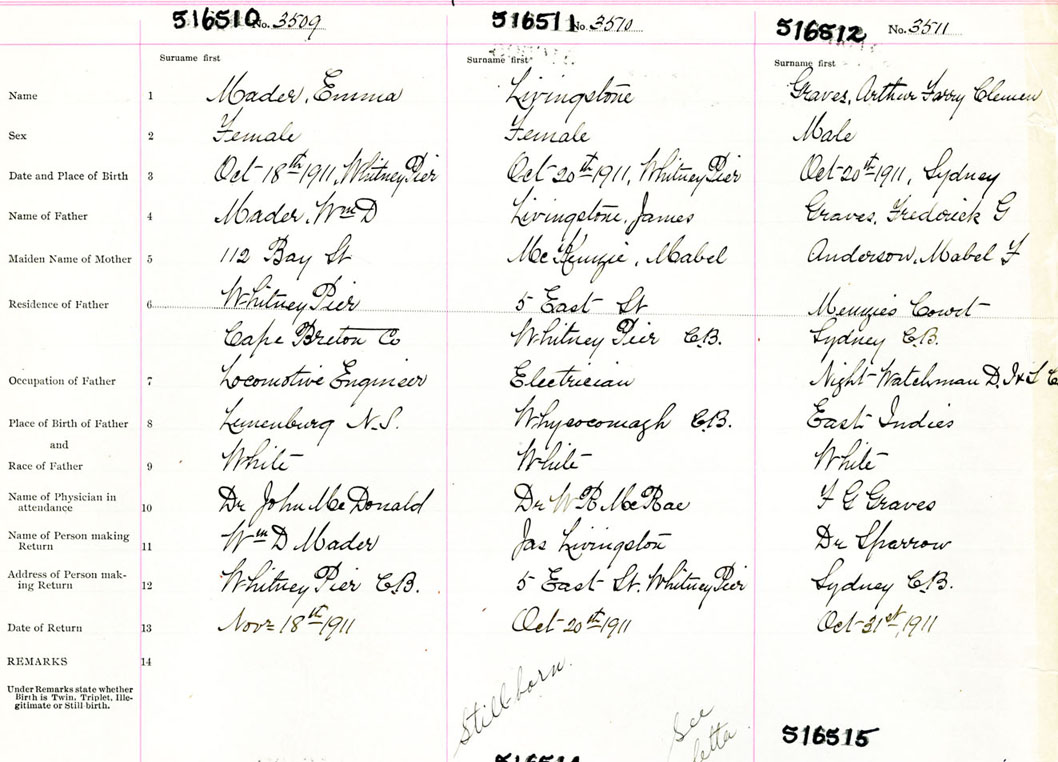 516510 No. 3509 516511 No. 3510 516512 No. 3511
Surname first Surname first Surname first
Name 1 Mader, Emma Livingstone Graves, Arthur Harry Clemen
Sex 2 Female Female Male
Date and Place of Birth 3 Oct 18th 1911, Whitney Pier Oct 20th 1911, Whitney Pier Oct 20th 1911, Sydney
Name of Father 4 Mader, Wm D Livingstone, James Graves, Frederick G
Maiden Name of Mother 5 112 Bay St McKenzie, Mabel Anderson, Mabel F
Residence of Father 6 Whitney Pier 5 East St Menzies Court
Cape Breton Co Whitney Pier C.B. Sydney C.B.
Occupation of Father 7 Locomotive Engineer Electrician Night Watchman D. I & S C
Place of Birth of Father 8 Lunenburg N.S. Whycocomagh C.B. East Indies
and
Race of Father 9 White White White
Name of Physician in
attendance 10 Dr John McDonald Dr W R McRae F G Graves
Name of Person making
Return 11 Wm D Mader Jas Livingston Dr Sparrow
Address of Person mak-
ing Return 12 Whitney Pier C.B. 5 East St. Whitney Pier Sydney C.B.
Date of Return 13 Nov 18th 1911 Oct 20th 1911 Oct 31st, 1911
REMARKS 14
Under Remarks state whether
Birth is Twin, Triplet, Ille-
gitimate or Still-birth.
Stillborn.
See
letter
516515
516514